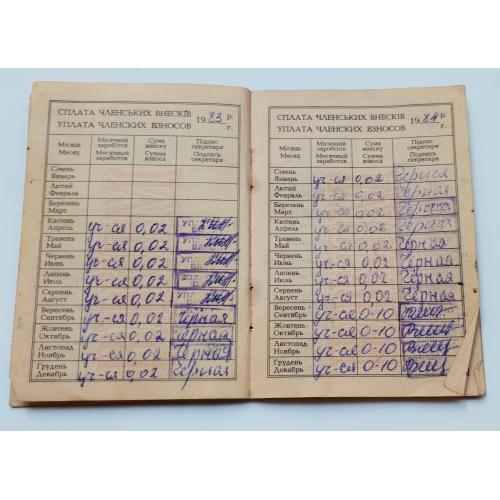 СПЛАТА ЧЛЕНСЬКИХ ВНЕСКІВ
УПЛАТА ЧЛЕНСКИХ ВЗНОСОВ 1983 р. г.
Місяць Місячний заробіток Сума внеску Підпис секретаря
Месяц Месячный заработок Сумма взноса Подпись секретаря
Січень
Январь
Лютий
Февраль
Березень
Март
Квітень
Апрель уч-ся 0,02
Травень
Май уч-ся 0,02
Червень
Июнь уч-ся 0,02
Липень
Июль уч-ся 0,02
Серпень
Август уч-ся 0,02
Вересень
Сентябрь уч-ся 0,02 Чёрная
Жовтень
Октябрь уч-ся 0,02 Чёрная
Листопад
Ноябрь уч-ся 0,02 Чёрная
Грудень
Декабрь уч-ся 0,02 Чёрная
СПЛАТА ЧЛЕНСЬКИХ ВНЕСКІВ
УПЛАТА ЧЛЕНСКИХ ВЗНОСОВ 1984 р. г.
Місяць Місячний заробіток Сума внеску Підпис секретаря
Месяц Месячный заработок Сумма взноса Подпись секретаря
Січень
Январь уч-ся 0,02 Чёрная
Лютий
Февраль уч-ся 0,02 Чёрная
Березень
Март уч-ся 0,02 Чёрная
Квітень
Апрель уч-ся 0,02 Чёрная
Травень
Май уч-ся 0,02 Чёрная
Червень
Июнь уч-ся 0,02 Чёрная
Липень
Июль уч-ся 0,02 Чёрная
Серпень
Август уч-ся 0,02 Чёрная
Вересень
Сентябрь уч-ся 0-10
Жовтень
Октябрь уч-ся 0-10
Листопад
Ноябрь уч-ся 0-10
Грудень
Декабрь уч-ся 0-10